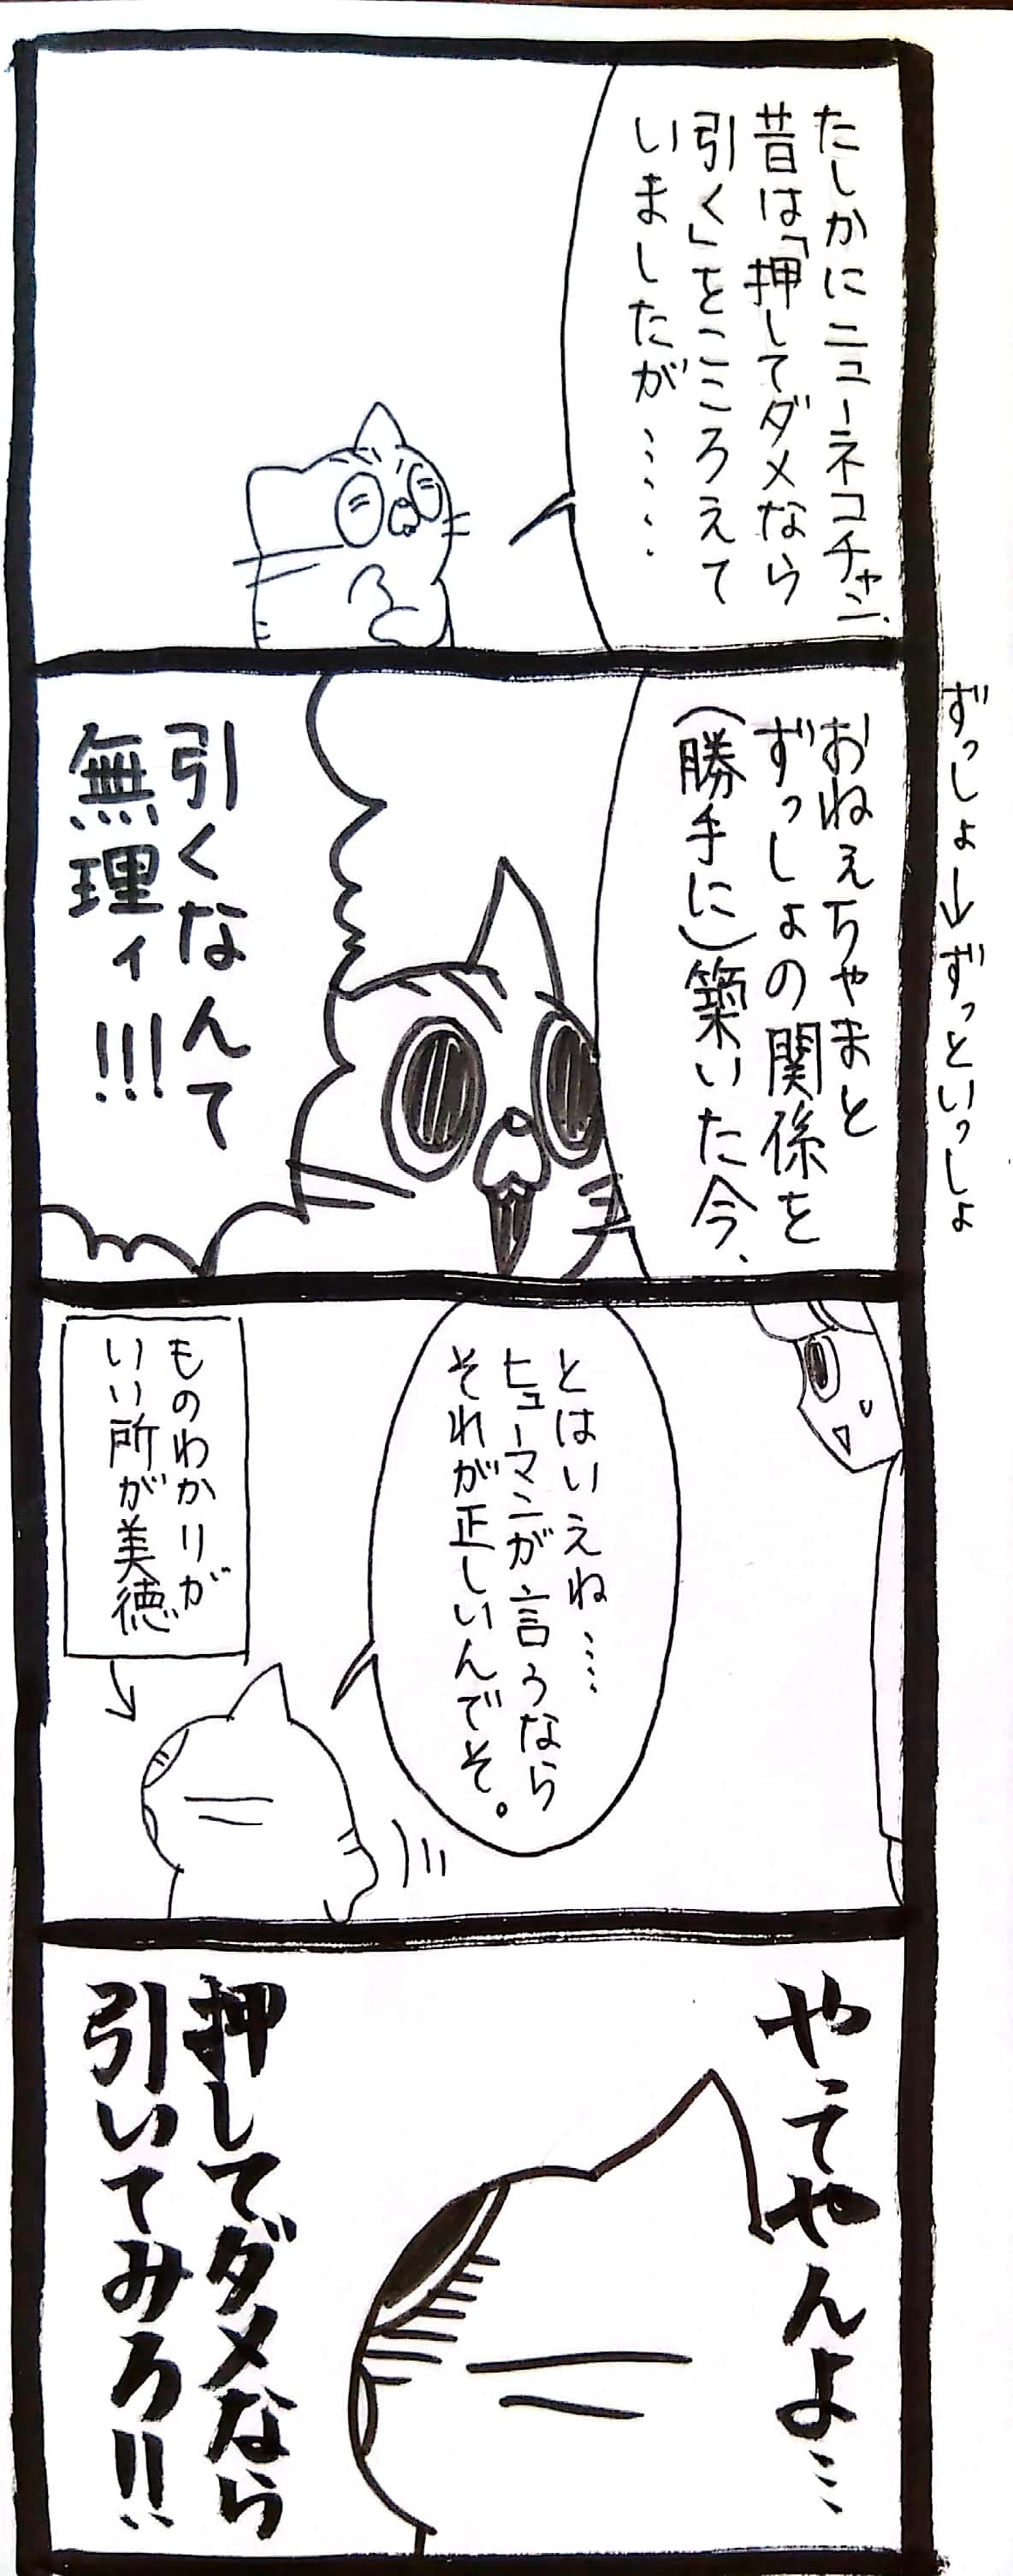 たしかにニューネコチャン、
昔は「押してダメなら
引く」をこころえて
いましたが……
おねぇちゃまと
ずっしょの関係を
(勝手に)築いた今、
ずっしょ→ずっといっしょ
引くなんて
無理ィ!!!
とはいえね……
ヒューマンが言うなら
それが正しいんでそ。
ものわかりが
いい所が美徳
やってやんよ…
押してダメなら
引いてみろ!!